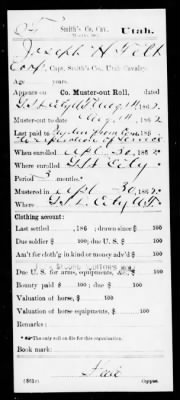 Smith's Co. Cav. Utah.
Joseph H. Felt
Corp., Capt. Smith's Co., Utah Cavalry.
Age years.
Appears on Co. Muster-out Roll, dated
G S L City U T Aug 14, 1862.
Muster-out to date Aug 14, 1862.
Last paid to 186 .
When enrolled Apl 30, 1862.
Where enrolled G S L City.
Period 3 months.*
Mustered in Apl 30, 1862.
Where G S L City U T
Clothing account:
Last settled , 186 ; drawn since $ 100
Due soldier $ 100; due U. S. $ 100
Am't for cloth'g in kind or money adv'd $ 100
Due U. S. for arms, equipments, &c., $ 100
Bounty paid $ 100; due $ 100
Valuation of horse, $ 100
Valuation of horse equipments, $ 100
Remarks:
The only roll on file for this organization.
Book mark:
(861) Copyist.